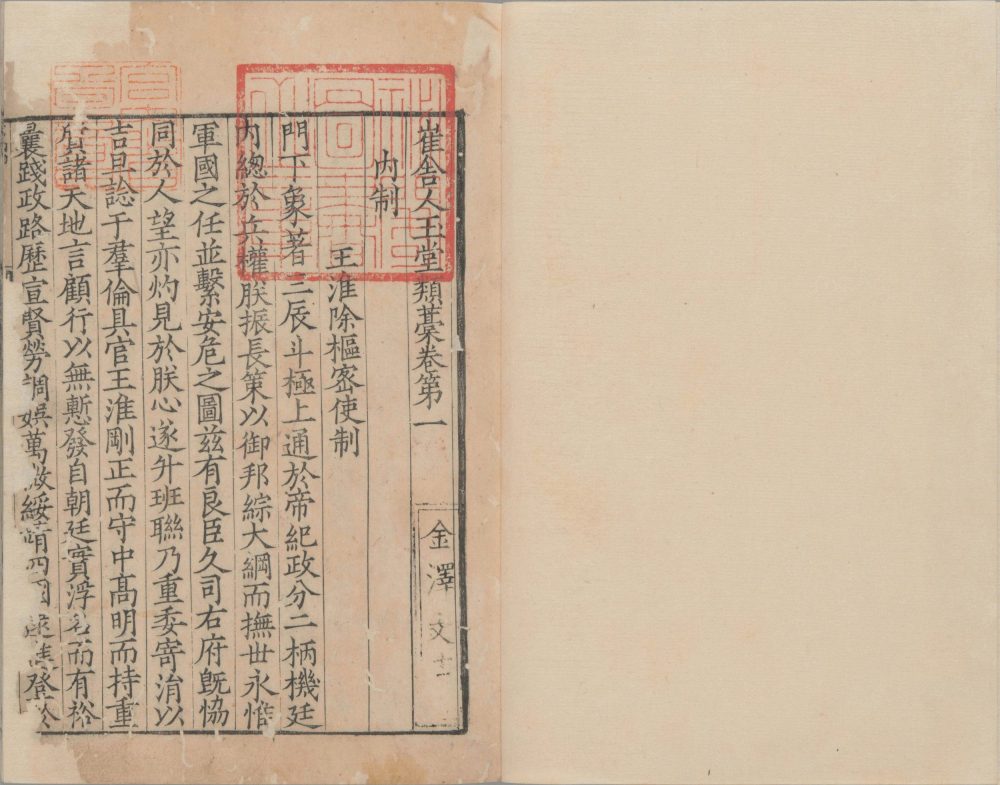 崔舍人玉堂類藁卷第一
金澤文
内制
王淮除樞密使制
門下象著三辰斗極上通於帝紀政分二柄機廷
内總於兵權朕振長策以御邦綜大綱而撫世永惟
軍國之任並繫安危之圖兹有良臣久司右府旣恊
同於人望亦灼見於朕心遂升班聯乃重委寄涓以
吉旦諗于羣倫具官王淮剛正而守中髙明而持重
質諸天地言顧行以無慙發自朝廷實浮名而有裕
曩踐政路歷宣賢勞調娛萬微綏靖四國遂登於